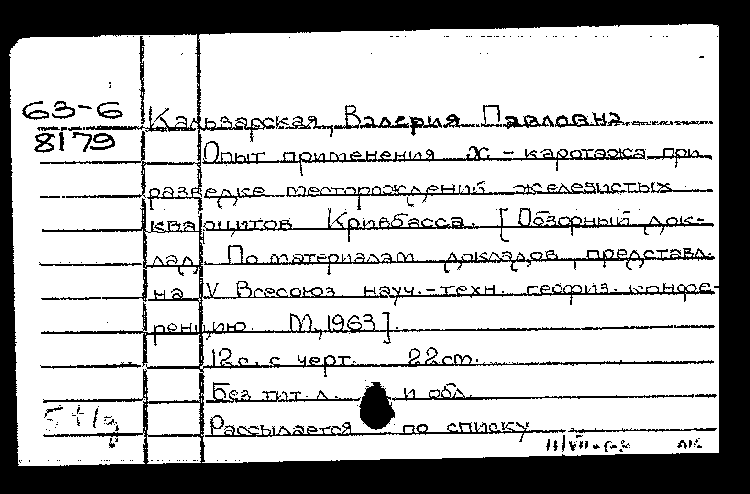 63-6
8179
Кальварская, Валерия Павловна
Опыт применения Х-каротажа при
разведке месторождений железистых
кварцитов Кривбасса. [Обзорный док-
лад. По материалам докладов, представл.
на V Всесоюз науч.-техн. геофиз. конфе-
ренцию. М., 1963].
12с. с черт. 22см.
Без тит. л. и обл.
Рассылается по списку